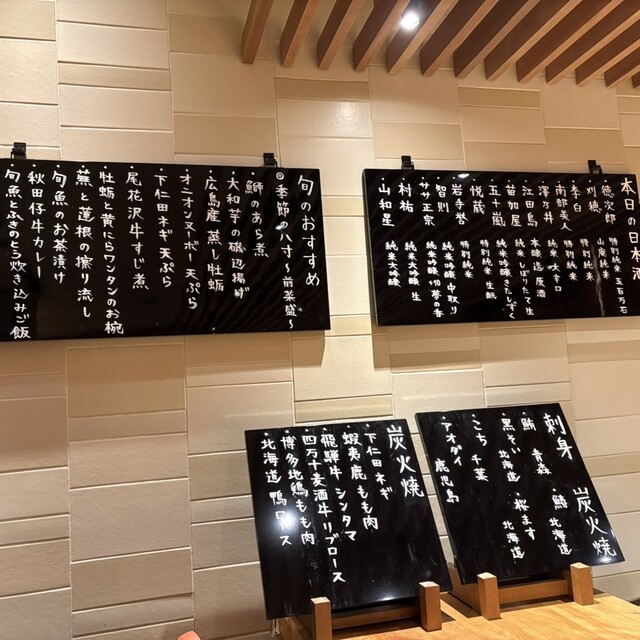 旬のおすすめ
◎季節の八寸～前菜盛～
・鰤のあら煮
・大和芋の磯辺揚げ
・広島産 蒸し牡蛎
・オニオンヌーボー天ぷら
・下仁田ネギ 天ぷら
・尾花沢牛すじ煮
・牡蛎と黄にらワンタンのお椀
・蕪と蓮根の擦り流し
・旬魚のお茶漬け
・秋田仔牛カレー
・旬魚とふきのとう炊き込みご飯
本日の日本酒
・徳次郎 山廃純米 五百万石
・刈穂 特別純米 生
・李白 特別純米
・南部美人 純米吟醸
・澤乃井 純米 大辛口
・江田島 本醸造 原酒
・苗加屋 純米 しぼりたて生
・五十嵐 純米吟醸
・悦凱 特別純米 生酛
・岩手誉 特別純米
・智則 純米吟醸 中取り
・ササ正宗 純米吟醸
・村祐 純米吟醸 生
・山和星 純米大吟醸
炭火焼
・下仁田ネギ
・蝦夷鹿もも肉
・飛騨牛 シンタマ
・四万十麦酒牛リブロース
・博多地鶏もも肉
・北海道 鴨ロース
刺身 炭火焼
・鮪 青森
・鰤 北海道
・黒そい 北海道
・桜ます 北海道
・こち 千葉
・アオダイ 鹿児島